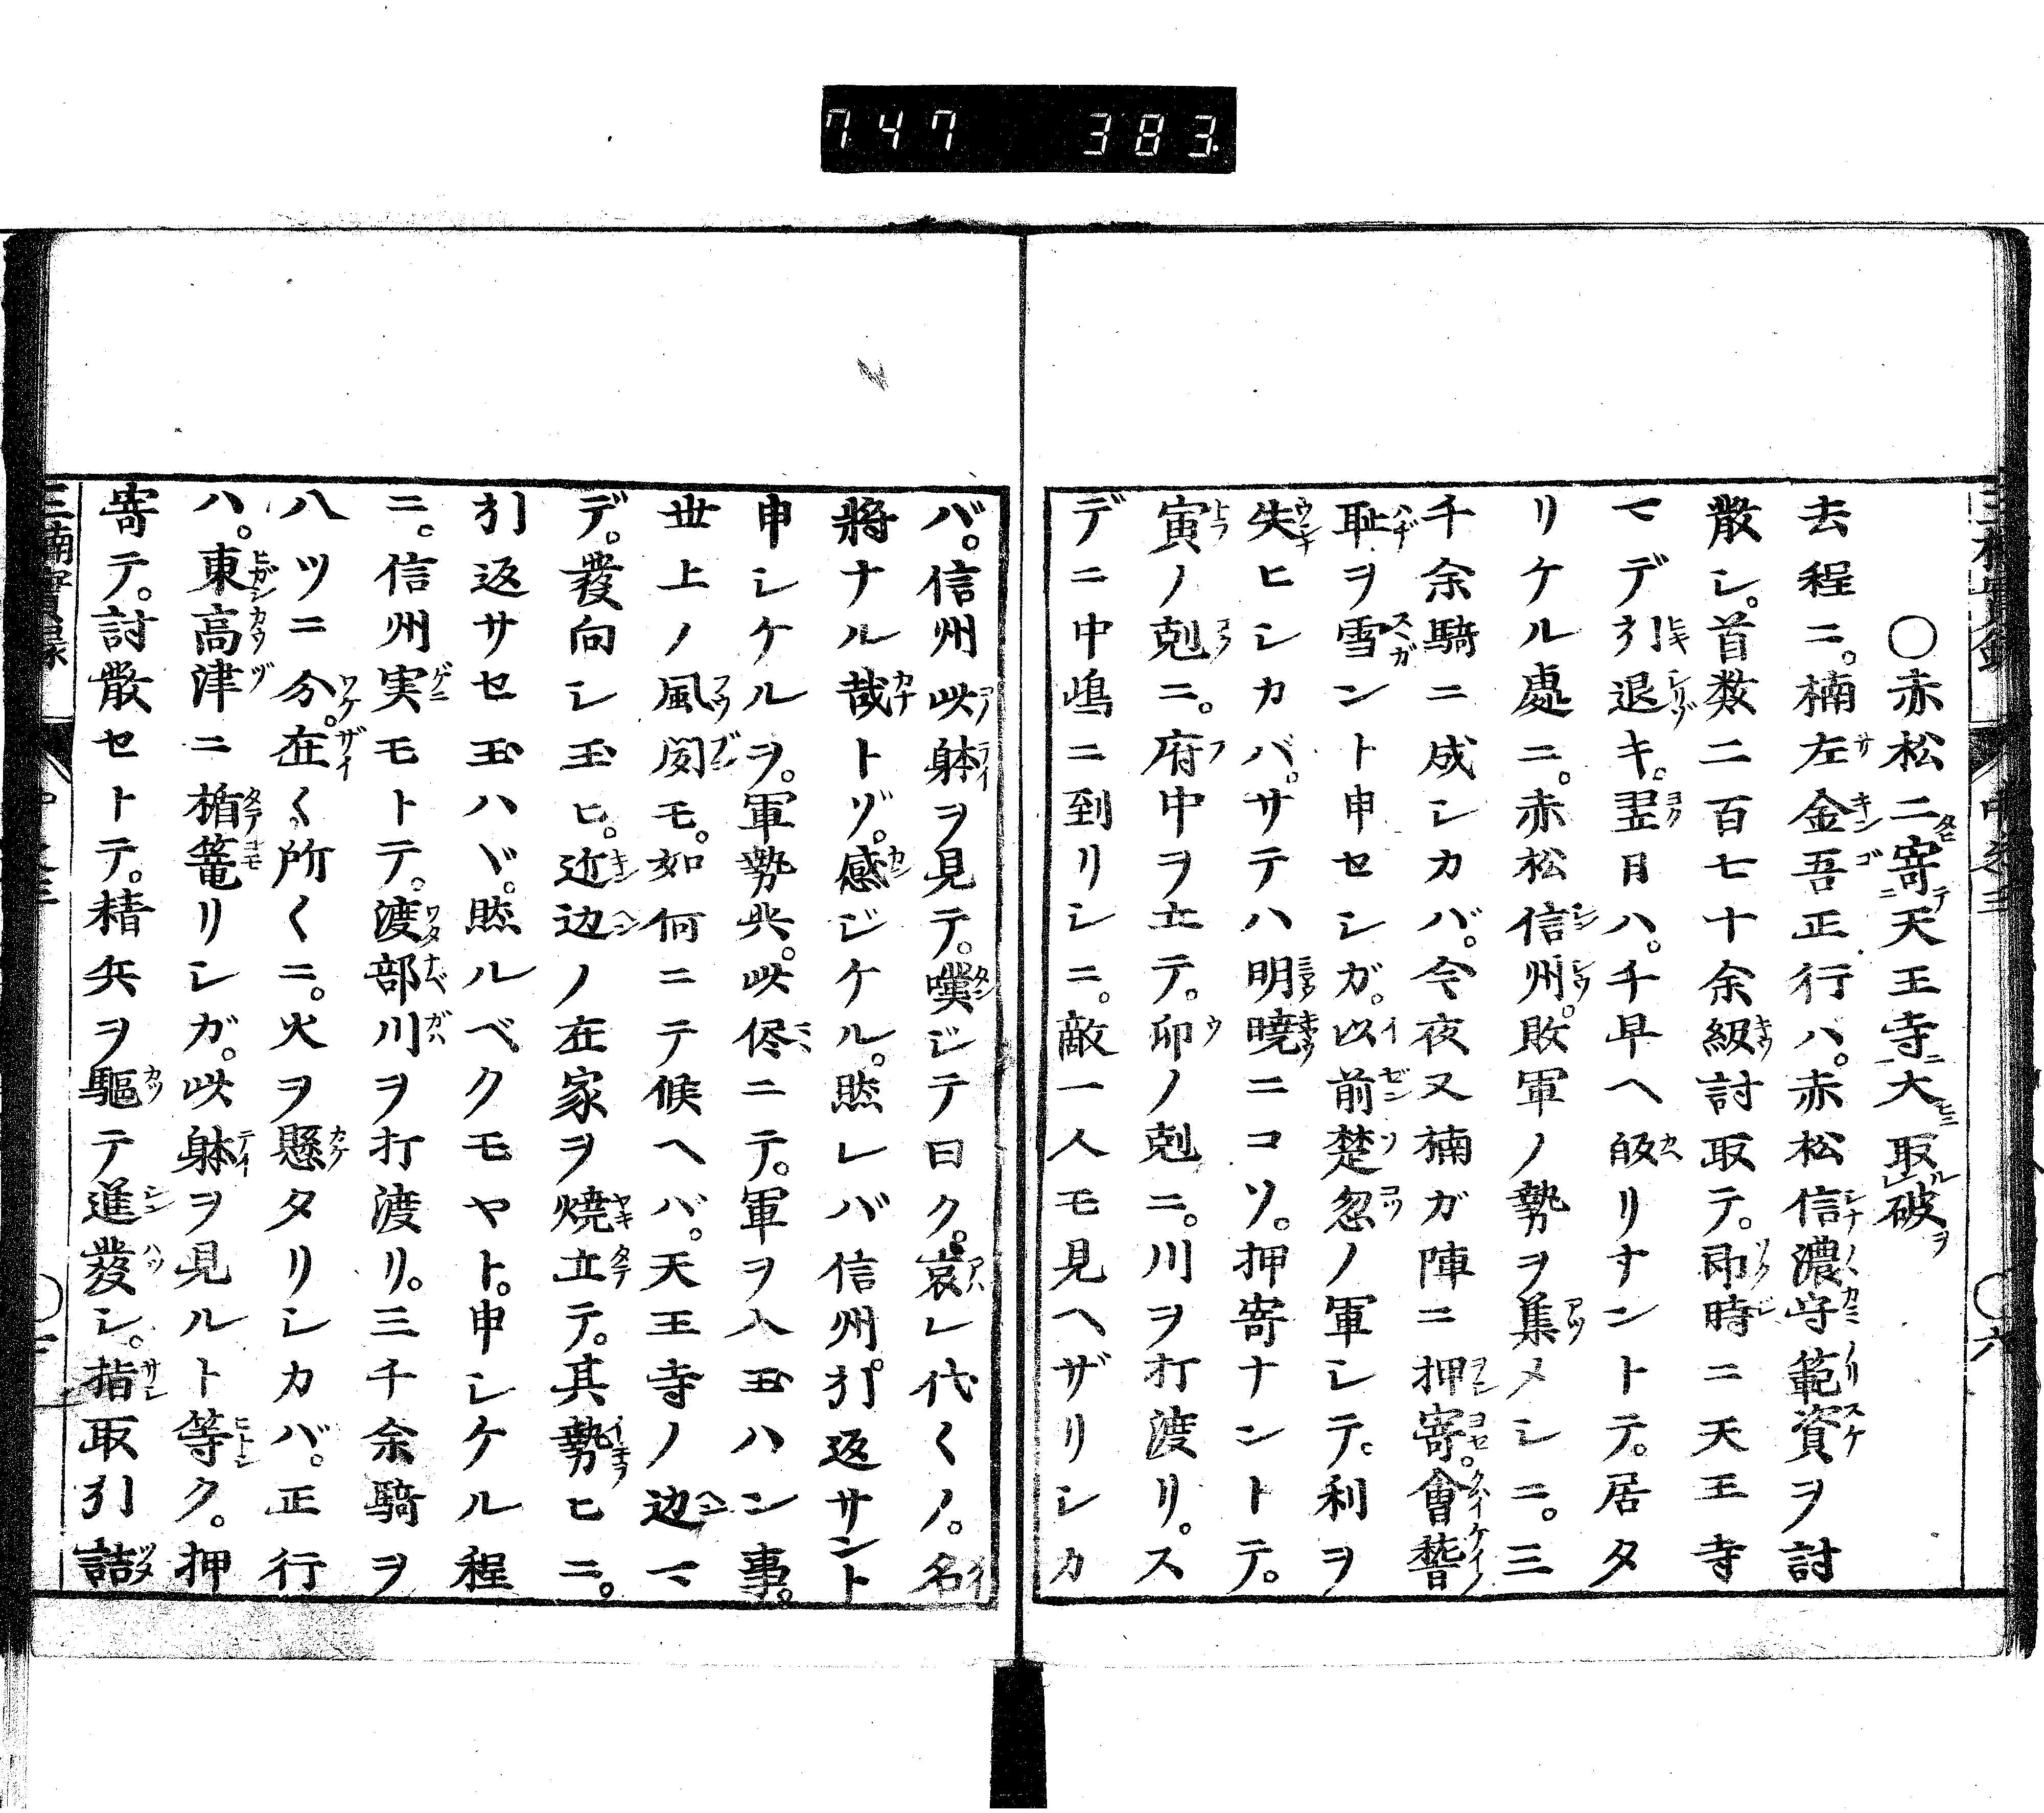 747 383.
○赤松二寄天王寺大取破
去程ニ。楠左金吾正行ハ。赤松信濃守範資ヲ討
散シ。首数二百七十余級討取テ。即時ニ天王寺
マデ引退キ。翌日ハ。千早ヘ皈リナントテ。居タ
リケル處ニ。赤松信州。敗軍ノ勢ヲ集メシニ。三
千余騎ニ成シカバ。今夜又楠ガ陣ニ押寄。會稽
恥ヲ雪ント申セシガ。以前楚忽ノ軍シテ。利ヲ
失ヒシカバ。サテハ明曉ニコソ。押寄ナントテ。
寅ノ剋ニ。府中ヲ立テ。卯ノ剋ニ。川ヲ打渡リ。ス
デニ中嶋ニ到リシニ。敵一人モ見ヘザリシカ
バ。信州此躰ヲ見テ。嘆ジテ曰ク。哀レ代々ノ。名
將ナル哉トゾ。感ジケル。然レバ信州。引返サント
申シケルヲ。軍勢共。此侭ニテ。軍ヲ入玉ハン事。
世上ノ風聞モ。如何ニテ候ヘバ。天王寺ノ辺マ
デ。發向シ玉ヒ。近辺ノ在家ヲ燒立テ。其勢ヒニ。
引返サセ玉ハヾ。然ルベクモヤト。申シケル程
ニ。信州実モトテ。渡部川ヲ打渡リ。三千余騎ヲ
八ツニ分。在々所々ニ。火ヲ懸タリシカバ。正行
ハ。東高津ニ楯篭リシガ。此躰ヲ見ルト等ク。押
寄テ。討散セトテ。精兵ヲ驅テ進發シ。指取引詰